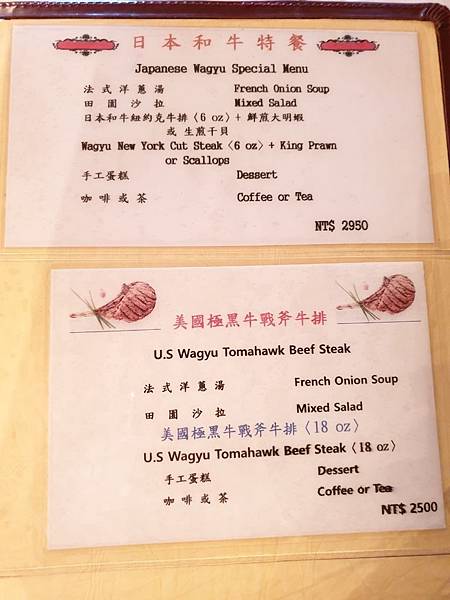 日本和牛特餐
Japanese Wagyu Special Menu
法式洋蔥湯 French Onion Soup
田園沙拉 Mixed Salad
日本和牛紐約克牛排〈6 oz〉+ 鮮煎大明蝦
或 生煎干貝
Wagyu New York Cut Steak〈6 oz〉+ King Prawn
or Scallops
手工蛋糕 Dessert
咖啡或茶 Coffee or Tea
NT$ 2950
美國極黑牛戰斧牛排
U.S Wagyu Tomahawk Beef Steak
法式洋蔥湯 French Onion Soup
田園沙拉 Mixed Salad
美國極黑牛戰斧牛排〈18 oz〉
U.S Wagyu Tomahawk Beef Steak〈18 oz〉
手工蛋糕 Dessert
咖啡或茶 Coffee or Tea
NT$ 2500